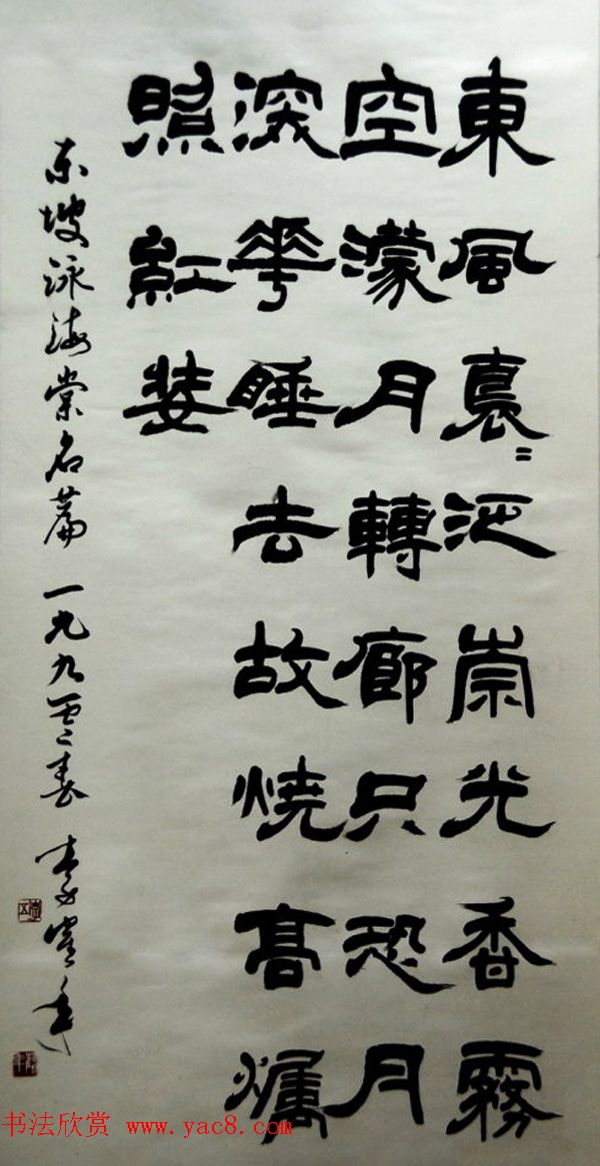 東風裊〻泛崇光香霧
空濛月轉廊只恐月
深花睡去故燒高爥
照紅娤
东坡泳海棠名篇 一九九零春 李
书法欣赏 www.yac8.com